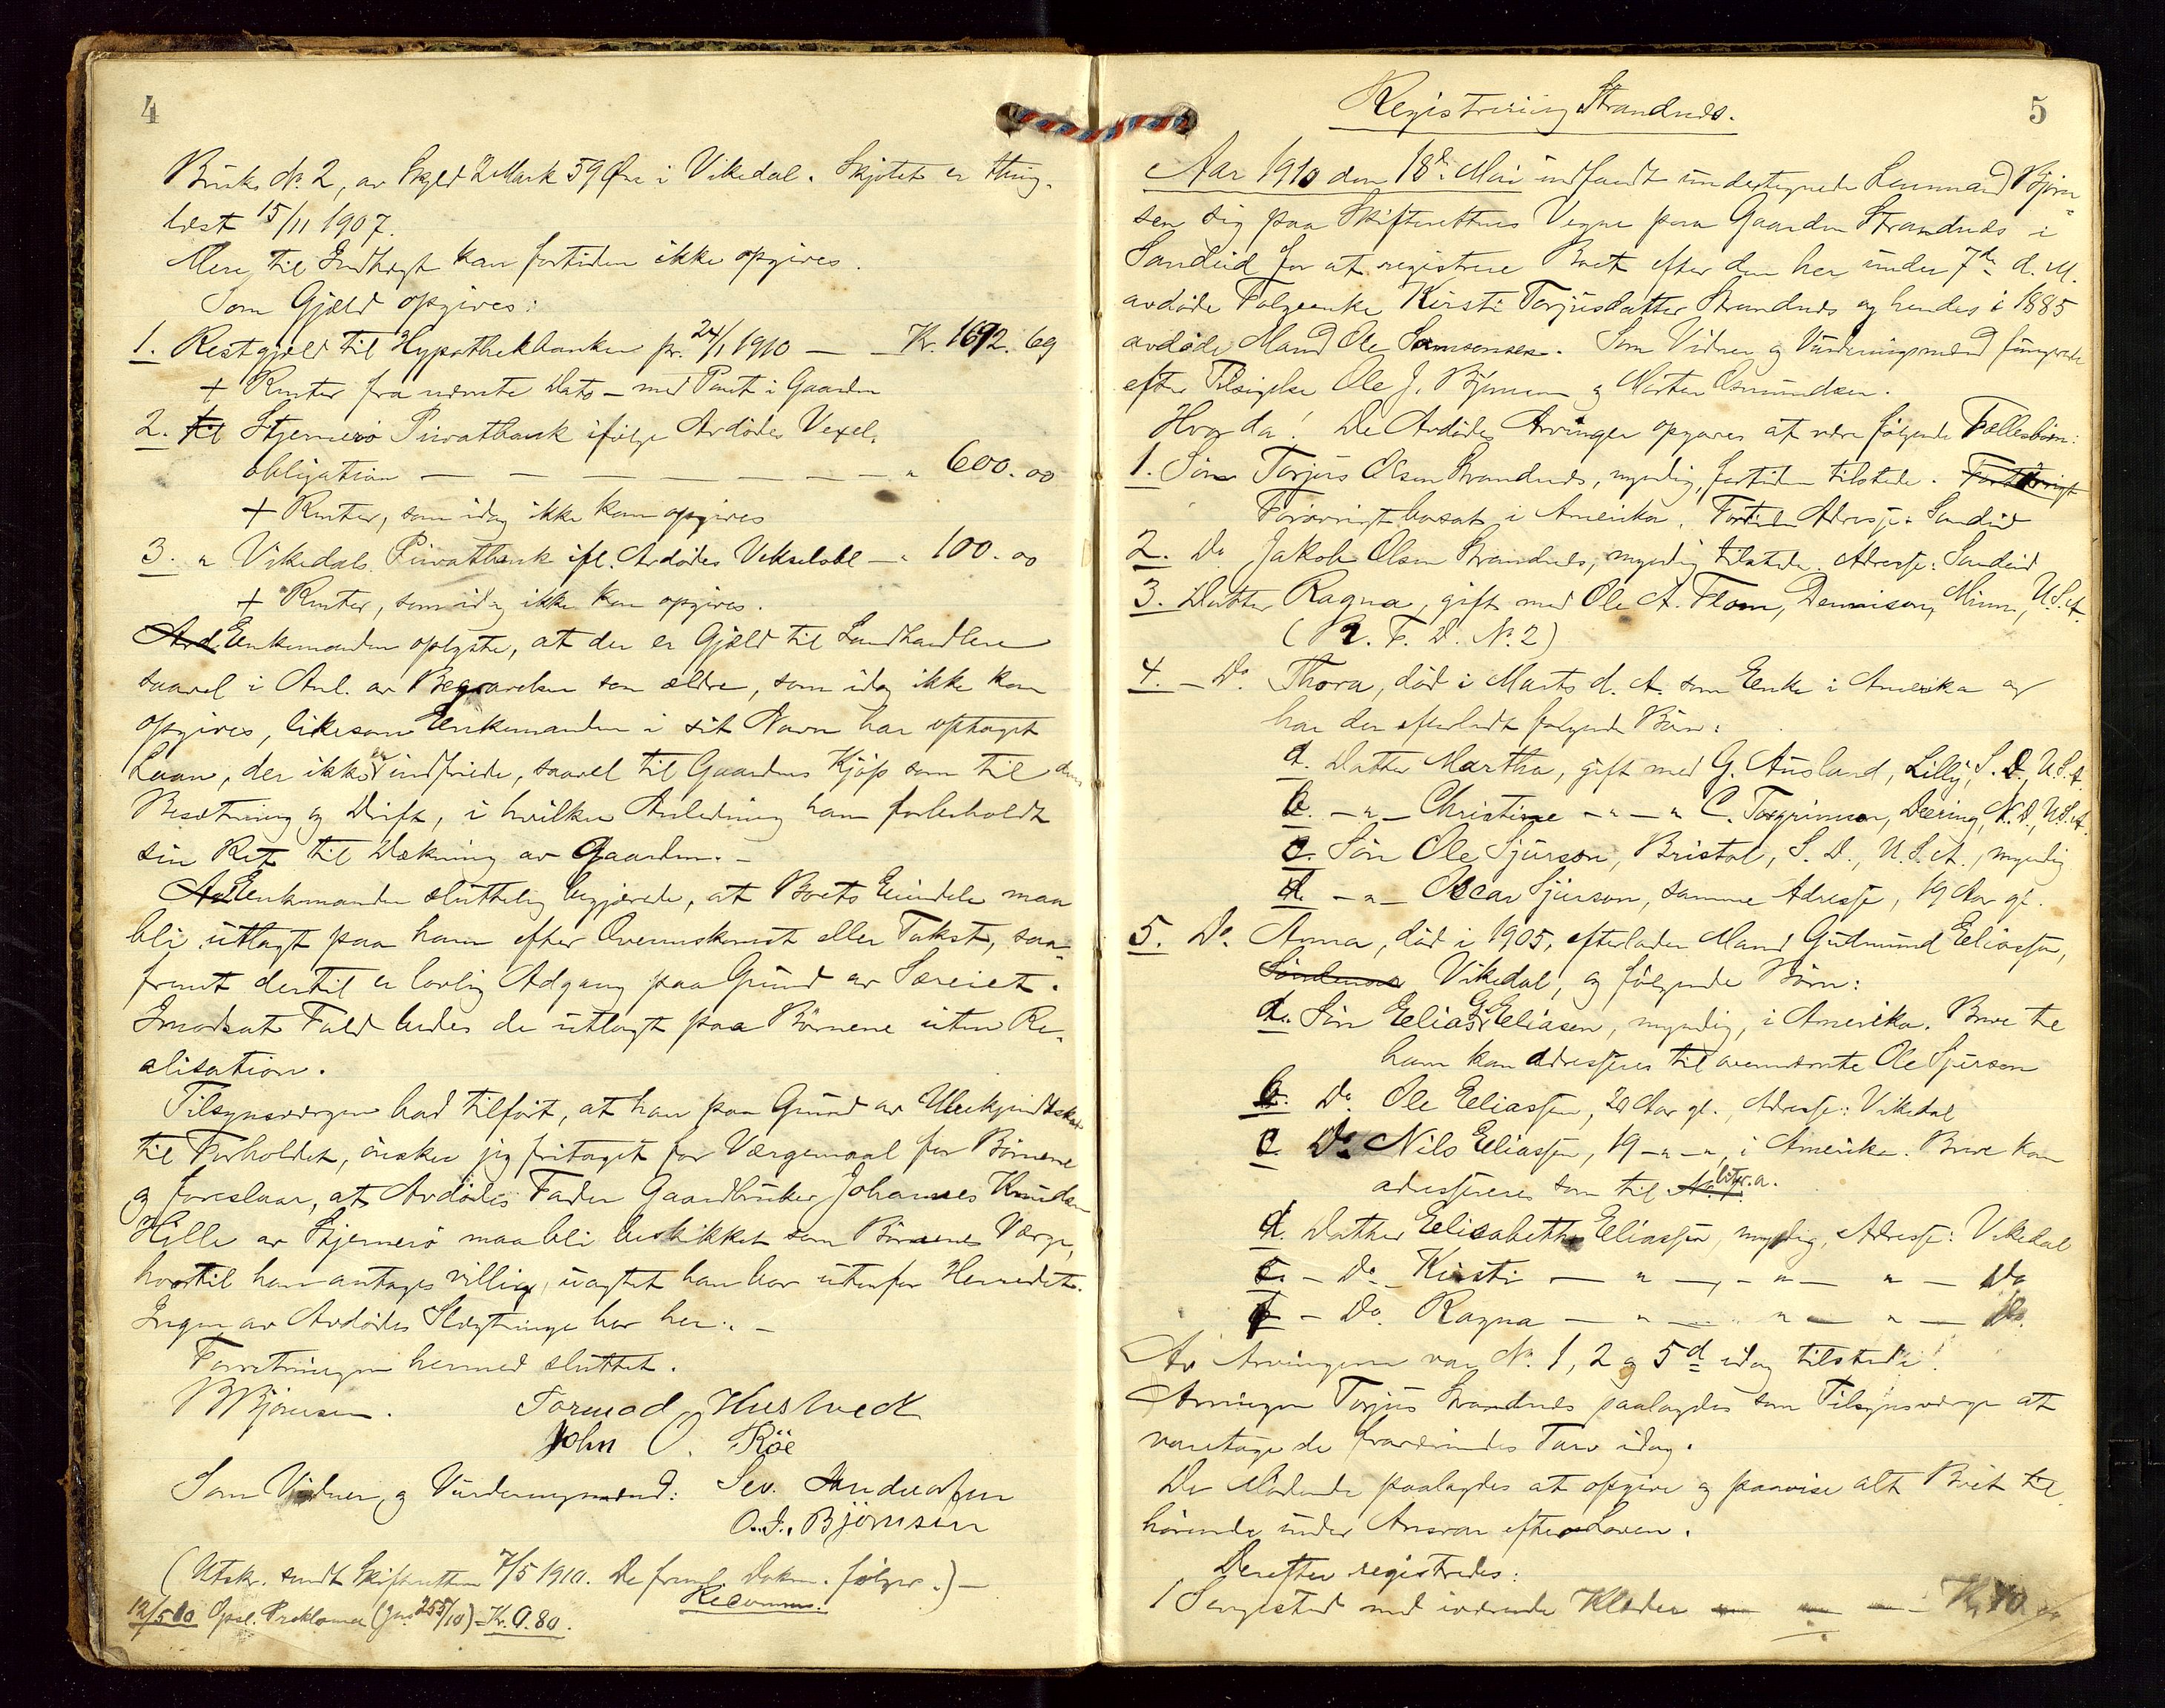 4
Bruks No. 2, av Skyld 2 Mark 59 Øre i Vikedal. Skjötet er thing-
læst 15/11 1907.
Mere til Indtægt kan fortiden ikke opgives.
Som Gjæld opgives:
1. Restgjæld til Hypothekbanken pr. 24/1 1910 — Kr. 1692. 69
+ Renter fra nævnte Dato – med Pant i Gaarden
2. til Stjernerö Privatbank ifölge Avdödes Vexel-
obligation — — — — — — „ 600. 00
+ Renter, som idag ikke kan opgives
3. „ Vikedals Privatbank ifl. Avdödes Vekselobl — „ 100. 00
+ Renter, som idag ikke kan opgives.
Avd Enkemanden oplyste, at der er Gjæld til Landhandlere
saavel i Anl. av Begravelsen som ældre, som idag ikke kan
opgives, likesom Enkemanden i sit Navn har optaget
Laan, der ikke er indfriede, saavel til Gaardens Kjöp som til dens
Besætning og Drift, i hvilken Anledning han forbeholdt
sin Ret til Dækning av Gaarden. –
Av Enkemanden sluttelig begjærede, at Boets Eiendele maa
bli utlagt paa ham efter Overenskomst eller Takst, saa-
fremt dertil er lovlig Adgang paa Grund av Særeiet.
I modsat Fald bedes de utlagt paa Börnene uten Re-
alisation.
Tilsynsværgen bad tilfört, at han paa Grund av Ubekjendtskab
til Forholdet, önsker jeg fritaget for Værgemaal for Börnene
og foreslaar, at Avdödes Fader Gaardbruker Johannes Knudsen
Hille av Stjernerö maa bli beskikket som Börnenes Værge,
hvortil han antages villig, uagtet han bor utenfor Herredet.
Ingen av Avdödes Slægtninge bor her. –
Forretningen hermed sluttet.
B Björnsen. Tormod Hustveck
John O. Röe
Som Vidner og Vurderingsmænd: Sev. Andreassen
O. J. Björnsen
(Utskr. sendt Skifteretten 7/5 1910. De freml. Dokm. fölger.) –
12/5 10 Opsl. Proklama (Jno. 255/10) – Kr. 0.80.
5
Registrering Strandnæs.
Aar 1910 den 18de Mai indfandt undertegnede Lensmand Björn-
sen sig paa Skifterettens Vegne paa Gaarden Strandnæs i
Sandeid for at registrere Boet efter den her under 7de d. M.
avdöde Folgeenke Kirsti Torjusdatter Strandnæs og hendes i 1885
avdöde Mand Ole Samsonsen. Som Vidner og Vurderingsmænd fungerede
efter Tilsigelse Ole J. Björnsen og Morten Osmundsen.
Hvorda! De Avdödes Arvinger opgaves at være fölgende Fællesbörn:
1. Sön Torjus Olsen Strandnæs, myndig, fortiden tilstede.
Forövrigt bosat i Amerika. Fortiden Adresse: Sandeid
2. Do Jakob Olsen Strandnæs, myndig tilstede. Adresse: Sandeid
3. Datter Ragna, gift med Ole A. Flom, Dennison, Minn., U.S.A.
(R. F. D. No. 2)
4. – Do. Thora, död i Marts d. A. som Enke i Amerika og
har der efterladt fölgende Börn:
a. Datter Martha, gift med G. Ausland, Lilly, S. D., U.S.A.
b. – „ – Christine – „ – „ C. Torgrimson, Deering, N. D., U.S.A.
c. Sön Ole Sjurson, Bristol, S. D., U.S.A., myndig
d. – „ – Oscar Sjurson, samme Adresse, 19 Aar gl.
5. Do. Anna, död i 1905, efterlader Mand Gudmund Eliassen,
Vikedal, og fölgende Börn:
a. Sön Elias G. Eliasen, myndig, i Amerika. Breve til
ham kan adresseres til ovennævnte Ole Sjurson
b. Do. Ole Eliassen, 20 Aar gl., Adresse: Vikedal
c. Do. Nils Eliassen, 19 – „ – „, i Amerika. Breve kan
adresseres som til No. 1. litr. a.
d. Datter Elisabeth Eliassen, myndig, Adresse: Vikedal
e. – Do. Kirsti — „ — „ — „ — Do
f. – Do. Ragna — „ — „ — „ — Do.
Av Arvingerne var No. 1, 2 og 5 d idag tilstede!
Arvingen Torjus Strandnæs paalagdes som Tilsynsværge at
varetage de fraværendes Tarv idag.
De Mödende paalagdes at opgive og paavise alt Boet til-
hörende under Ansvar efter Loven.
Derefter registredes:
1 Sengested med iværende Klæder — — — Kr. 10. 00